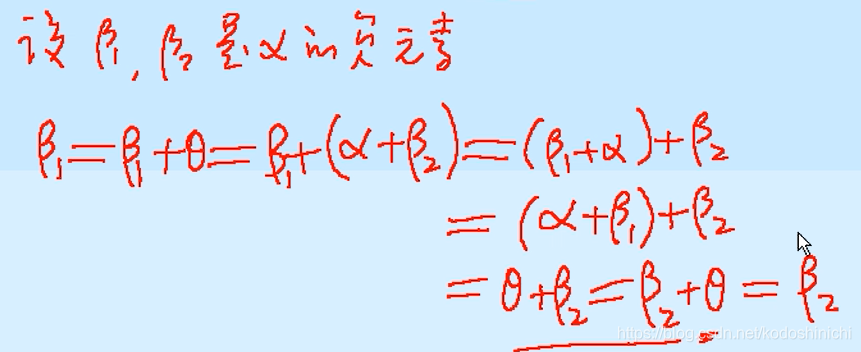 设 β₁, β₂ 是 α 的负元素
β₁ = β₁ + θ = β₁ + (α + β₂) = (β₁ + α) + β₂
= (α + β₁) + β₂
= θ + β₂ = β₂ + θ = β₂
https://blog.csdn.net/kodoshinichi